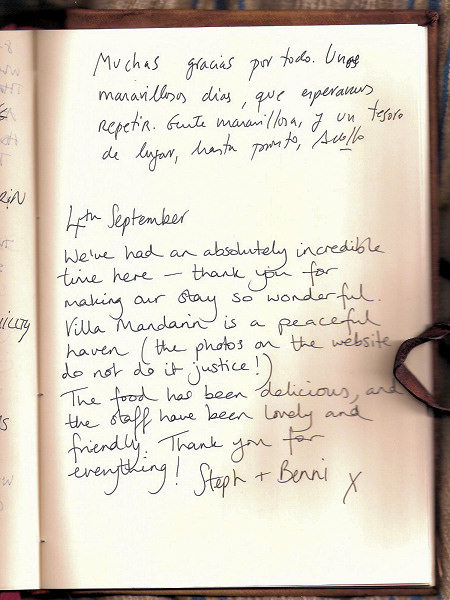 Muchas gracias por todo. Unos
maravillosos dias, que esperamos
repetir. Gente maravillosa, y un tesoro
de lugar, hasta pronto,
4th September
We've had an absolutely incredible
time here – thank you for
making our stay so wonderful.
Villa Mandarin is a peaceful
haven (the photos on the website
do not do it justice!)
The food has been delicious, and
the staff have been lovely and
friendly. Thank you for
everything! Steph + Benni X